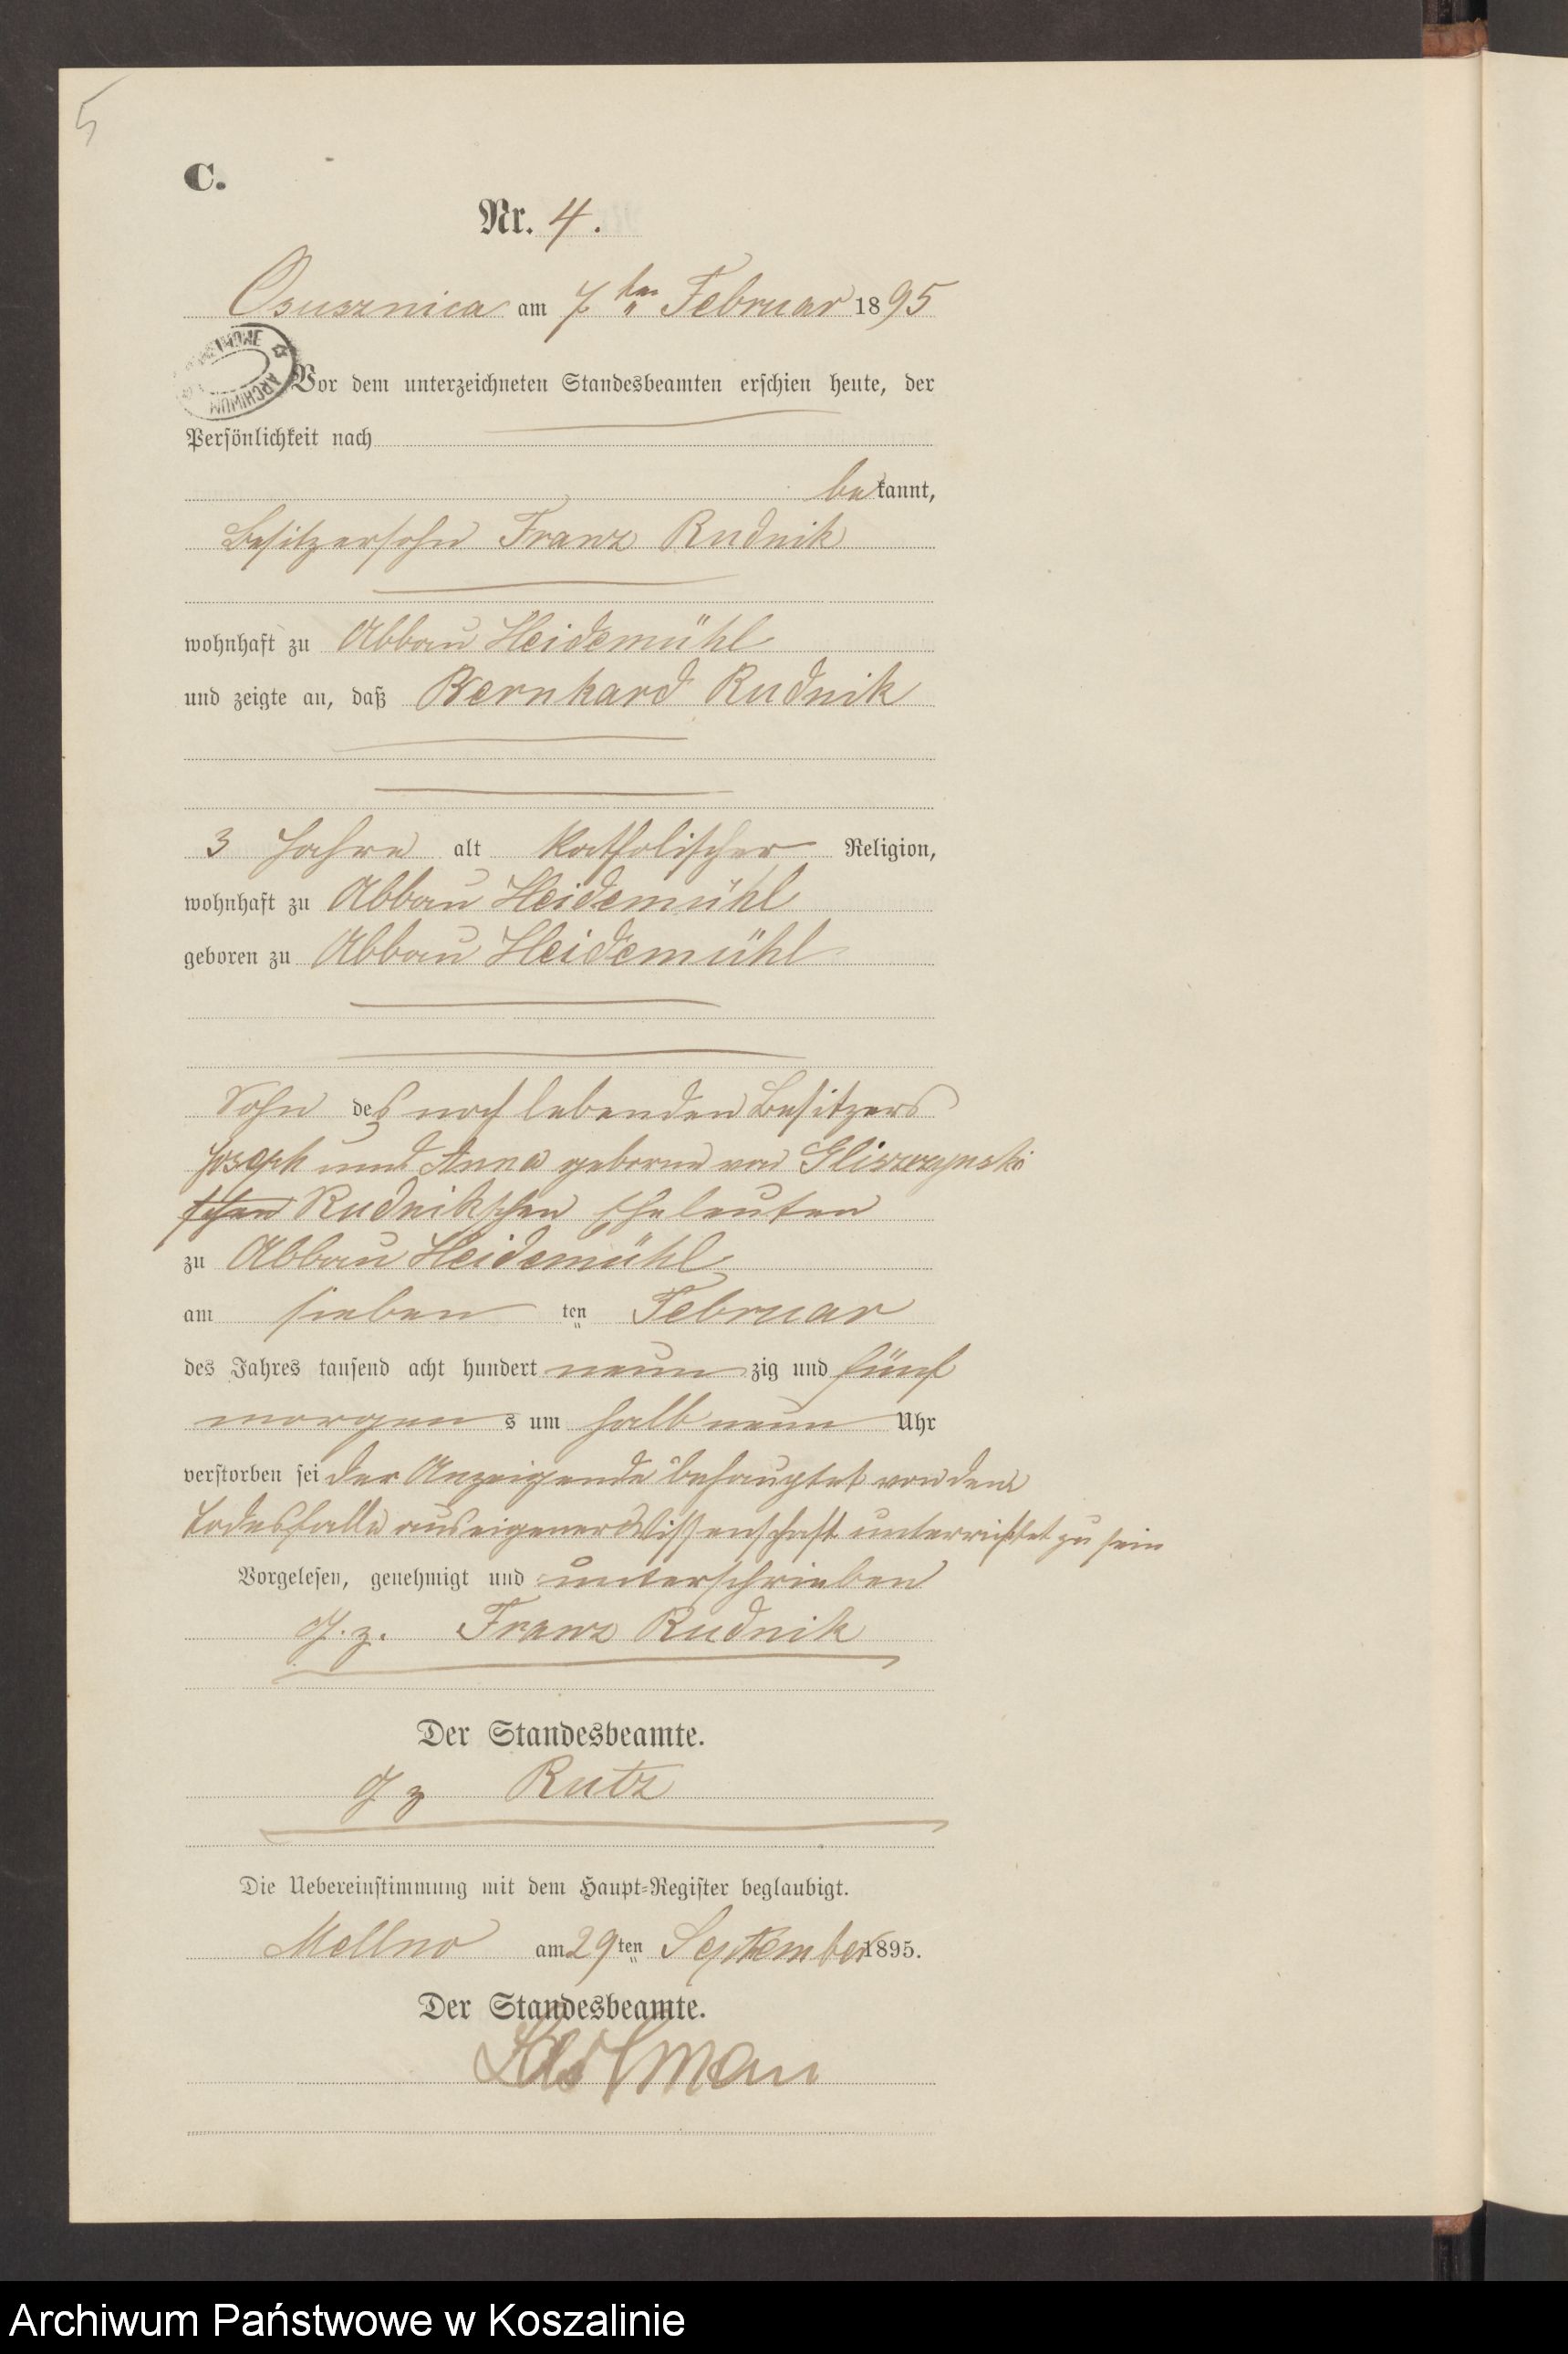 5
C.
Nr. 4.
Osusznica am 7ten Februar 1895
Vor dem unterzeichneten Standesbeamten erschien heute, der
Persönlichkeit nach
bekannt,
Besitzersohn Franz Rudnik
wohnhaft zu Abbau Heidemühl
und zeigte an, daß Bernhard Rudnik
3 Jahre alt katholischer Religion,
wohnhaft zu Abbau Heidemühl
geboren zu Abbau Heidemühl
Sohn des noch lebenden Besitzers
Joseph und Anna geborene von Gliszczynski
schen Rudnikschen Eheleuten
zu Abbau Heidemühl
am sieben ten Februar
des Jahres tausend acht hundert neun zig und fünf
morgen s um halb neun Uhr
verstorben sei der Anzeigende behauptet von dem
Todesfalle aus eigener Wissenschaft unterrichtet zu sein
Vorgelesen, genehmigt und unterschrieben
gz. Franz Rudnik
Der Standesbeamte.
gz Rutz
Die Uebereinstimmung mit dem Haupt-Register beglaubigt.
Mellno am 29ten September 1895.
Der Standesbeamte.
Archiwum Państwowe w Koszalinie